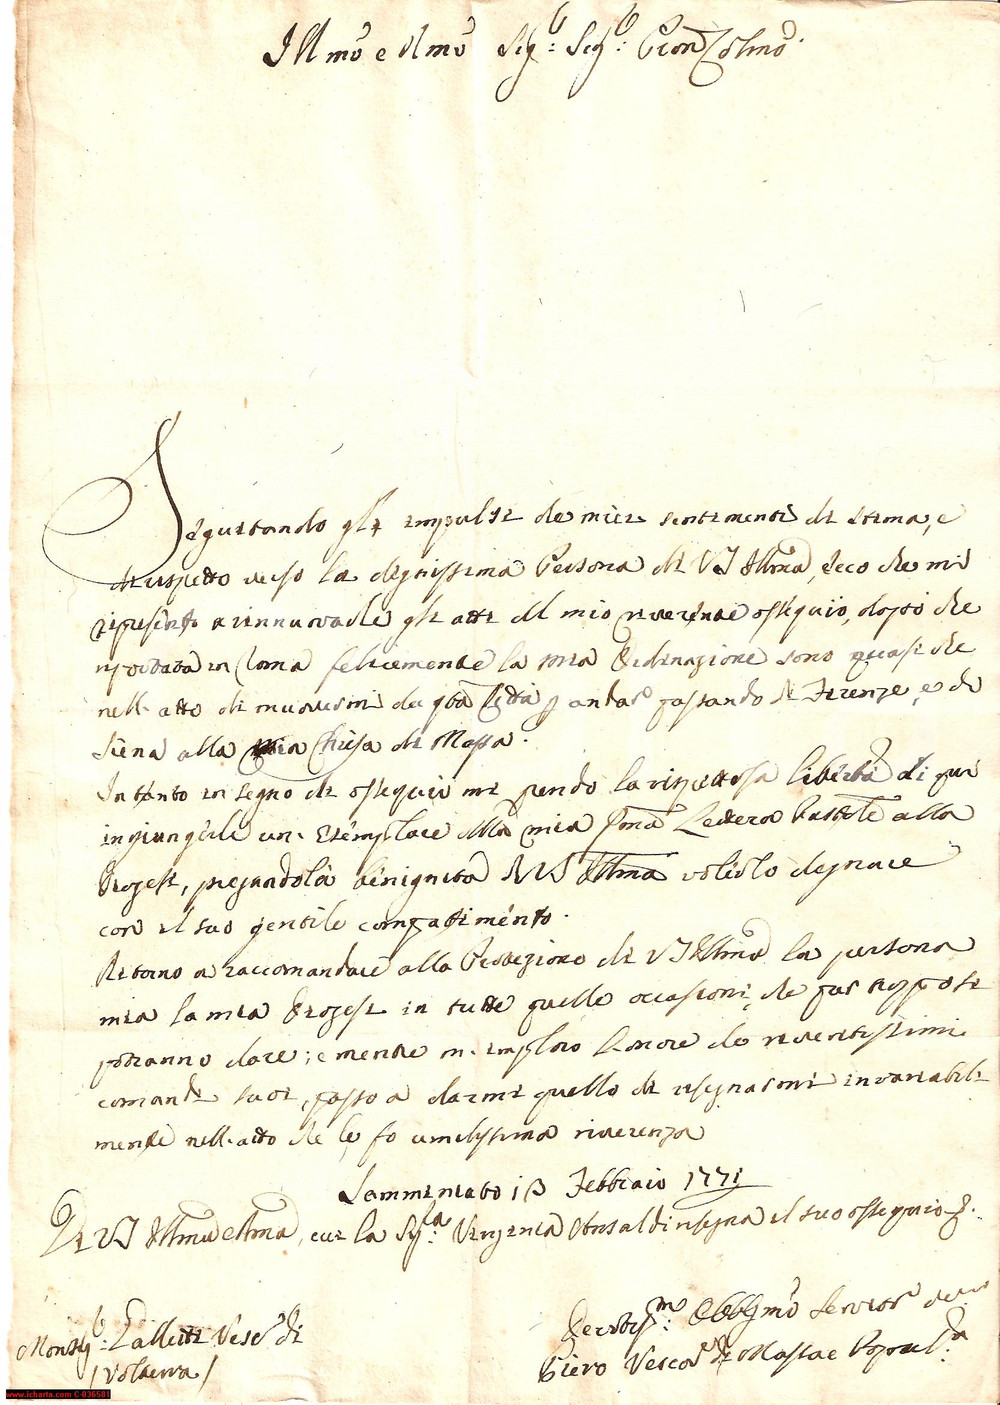 Illmo e Rmo Sigr: Sigr: Pron Colmo
Seguitando gli impulsi de miei sentimenti di stima, e
di rispetto verso la degnissima Persona di VS Illma, Ecco che mi
ripresento a rinnuovarle gli atti del mio riverente ossequio, dopo che
riportata in Roma felicemente la mia Ordinazione sono quasi che
nell'atto di muovermi da qta Città p andar passando di Firenze, e di
Siena alla mia Chiesa di Massa.
In tanto in segno di ossequio mi prendo la rispettosa libertà di qui
ingiungerle un' esemplare della mia pma Lettera Pastorle alla
Diogesi, pregando la benignità di VS Illma volerlo degnare
con il suo gentile compatimento.
Ritorno a raccomandare alla Protezione di VS Illma la persona
mia la mia Diogesi in tutte quelle occasioni, che pur
potranno dare; e mentre m'imploro l'onore de riveritissimi
comandi suoi, passo a darmi quello di rassegnarmi invariabil
mente nell'atto che le fo umilissima riverenza
Samminiato 13 Febbraio 1771
Di VS Illma e Rma, cui la Siga: Virginia Ansaldi rassegna il suo ossequio
Devotismo: Obblgmo Servitor vero
Piero Vescovo di Massa e Populna
Monsigr: Galletti Vesco di
/Volterra/
www.icharta.com C-036581